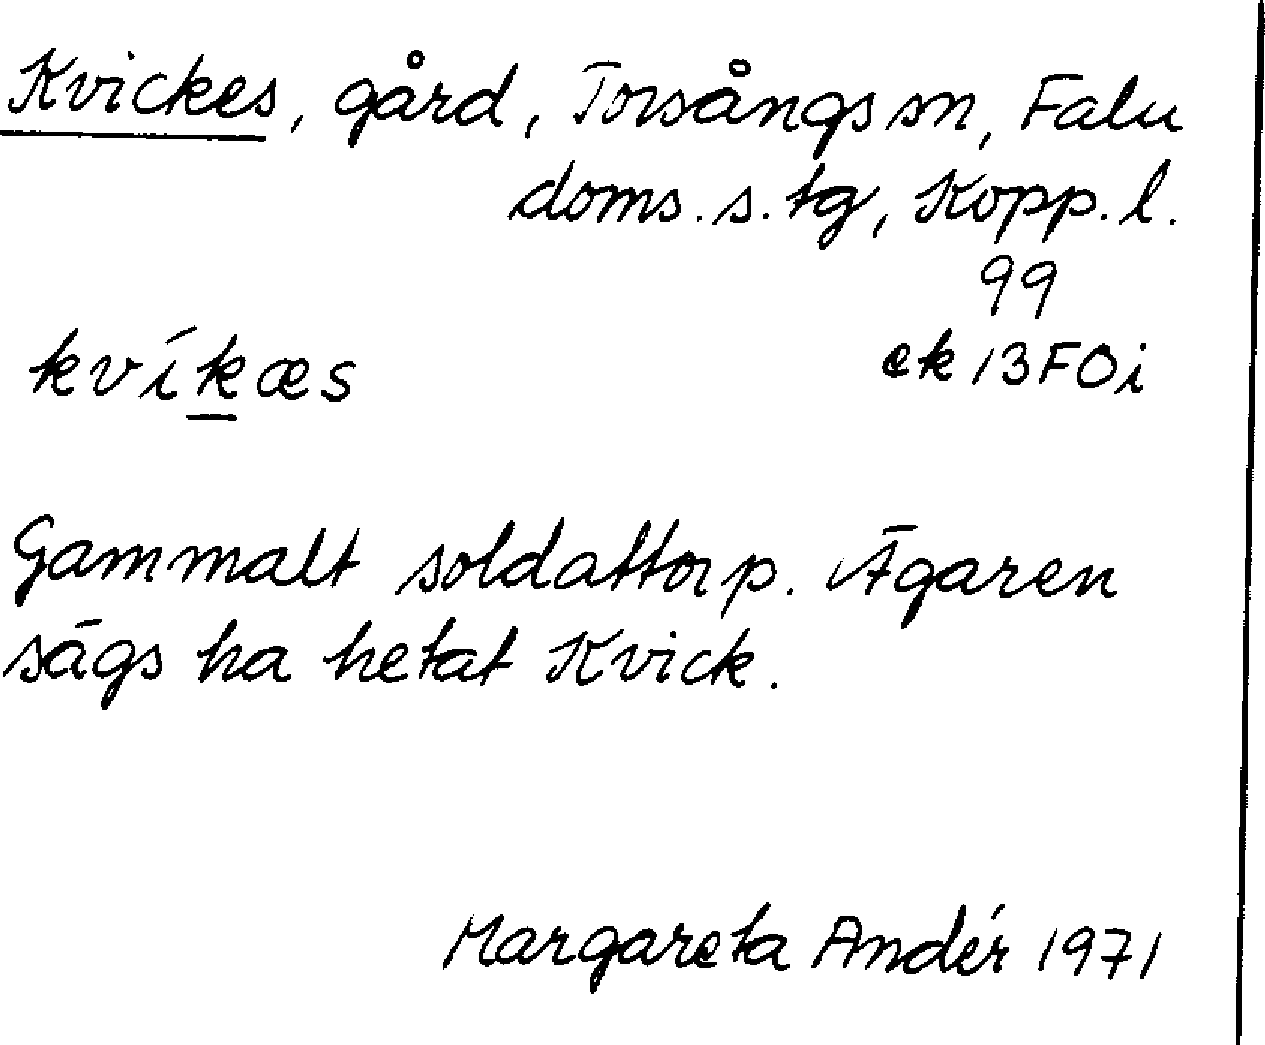 Kvickes, gård, Torsångs sn, Falu
doms. s. tg, Kopp. l.
99
kvíkæs ek 13F0i
Gammalt soldattorp. Ägaren
sägs ha hetat Kvick.
Margareta Andér 1971